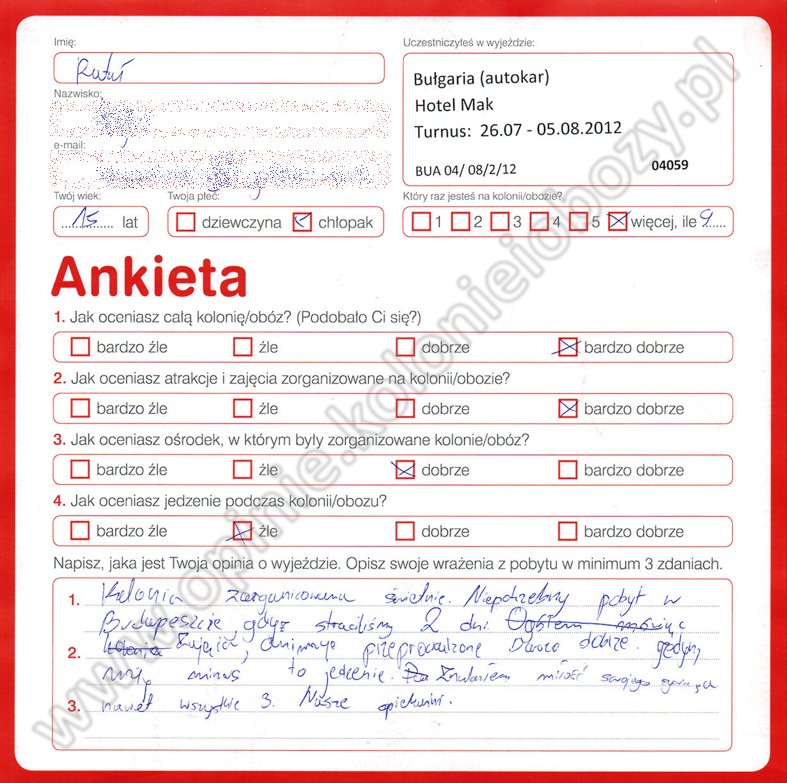 Imię:
Rafał
Uczestniczyłeś w wyjeździe:
Bułgaria (autokar)
Hotel Mak
Turnus: 26.07 - 05.08.2012
BUA 04/ 08/2/12 04059
Nazwisko:
e-mail:
Twój wiek:
15 lat
Twoja płeć:
dziewczyna chłopak
Który raz jesteś na kolonii/obozie?
1 2 3 4 5 więcej, ile 9
Ankieta
1. Jak oceniasz całą kolonię/obóz? (Podobało Ci się?)
bardzo źle źle dobrze bardzo dobrze
2. Jak oceniasz atrakcje i zajęcia zorganizowane na kolonii/obozie?
bardzo źle źle dobrze bardzo dobrze
3. Jak oceniasz ośrodek, w którym były zorganizowane kolonie/obóz?
bardzo źle źle dobrze bardzo dobrze
4. Jak oceniasz jedzenie podczas kolonii/obozu?
bardzo źle źle dobrze bardzo dobrze
Napisz, jaka jest Twoja opinia o wyjeździe. Opisz swoje wrażenia z pobytu w minimum 3 zdaniach.
1. Kolonia zorganizowana świetnie. Niepotrzebny pobyt w
Budapeszcie, gdyż straciliśmy 2 dni. Ogółem mówiąc
2. Zajęcia, animacje przeprowadzone bardzo dobrze. Jedyny
mój minus to jedzenie. Znalazłem miłość swojego życia,
3. nawet wszystkie 3. Nasze opiekunki.
www.opinie.kolonieiobozy.pl